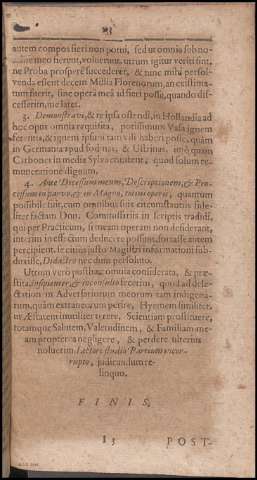 autem compos fieri non potui, sed ut omnia sub no-
mine meo fierent, voluerunt, utrum igitur veriti sint,
ne Proba prosperè succederet, & tunc mihi persol-
venda essent decem Millia Florenorum, an existima-
tum fuerit, sine opera mea id fieri posse, quando dis-
cesserim, me latet.
3. Demonstravi, & re ipsa ostendi, in Hollandia ad
hoc opus omnia requisita, potissimum Vasa ignem
ferentia, & igneni ipsum tam vili haberi posse, quàm
in Germania apud fodinas, & Ustrinas. imò quàm
Carbones in media Sylva constent, quod solum re-
muneratione dignum.
4. Ante Discessum meum, Descriptionem, & Pro-
cessum in parvo, & in Magno, totius operis, quantum
possibile fuit, cum omnibus suis circumstantiis fide-
liter factam Don. Commissariis in scriptis tradidi,
qui per Practicum, si meam operam non desiderant,
interim in effectum deducere possent, forsasse autem
percipient, se citiùs justo Magistri informationi sub-
duxisse, Didactro nec dum persoluto.
Utrum verò post hæc omnia considerata, & præ-
stita, insipienter, & inconsultò fecerim, quòd ad dele-
ctationem Adversariorum meorum tam indigena-
rum, quàm extraneorum posse, Hyemem inutiliter,
ut Æstatem inutiliter terere, Scientiam prostituere,
totamque Salutem, Valetudinem, & Familiam me-
am propterea negligere, & perdere ulterius
noluerim. Lectoris studio Partium incor-
rupto, judicandum re-
linquo.
FINIS.
I 3 POST-